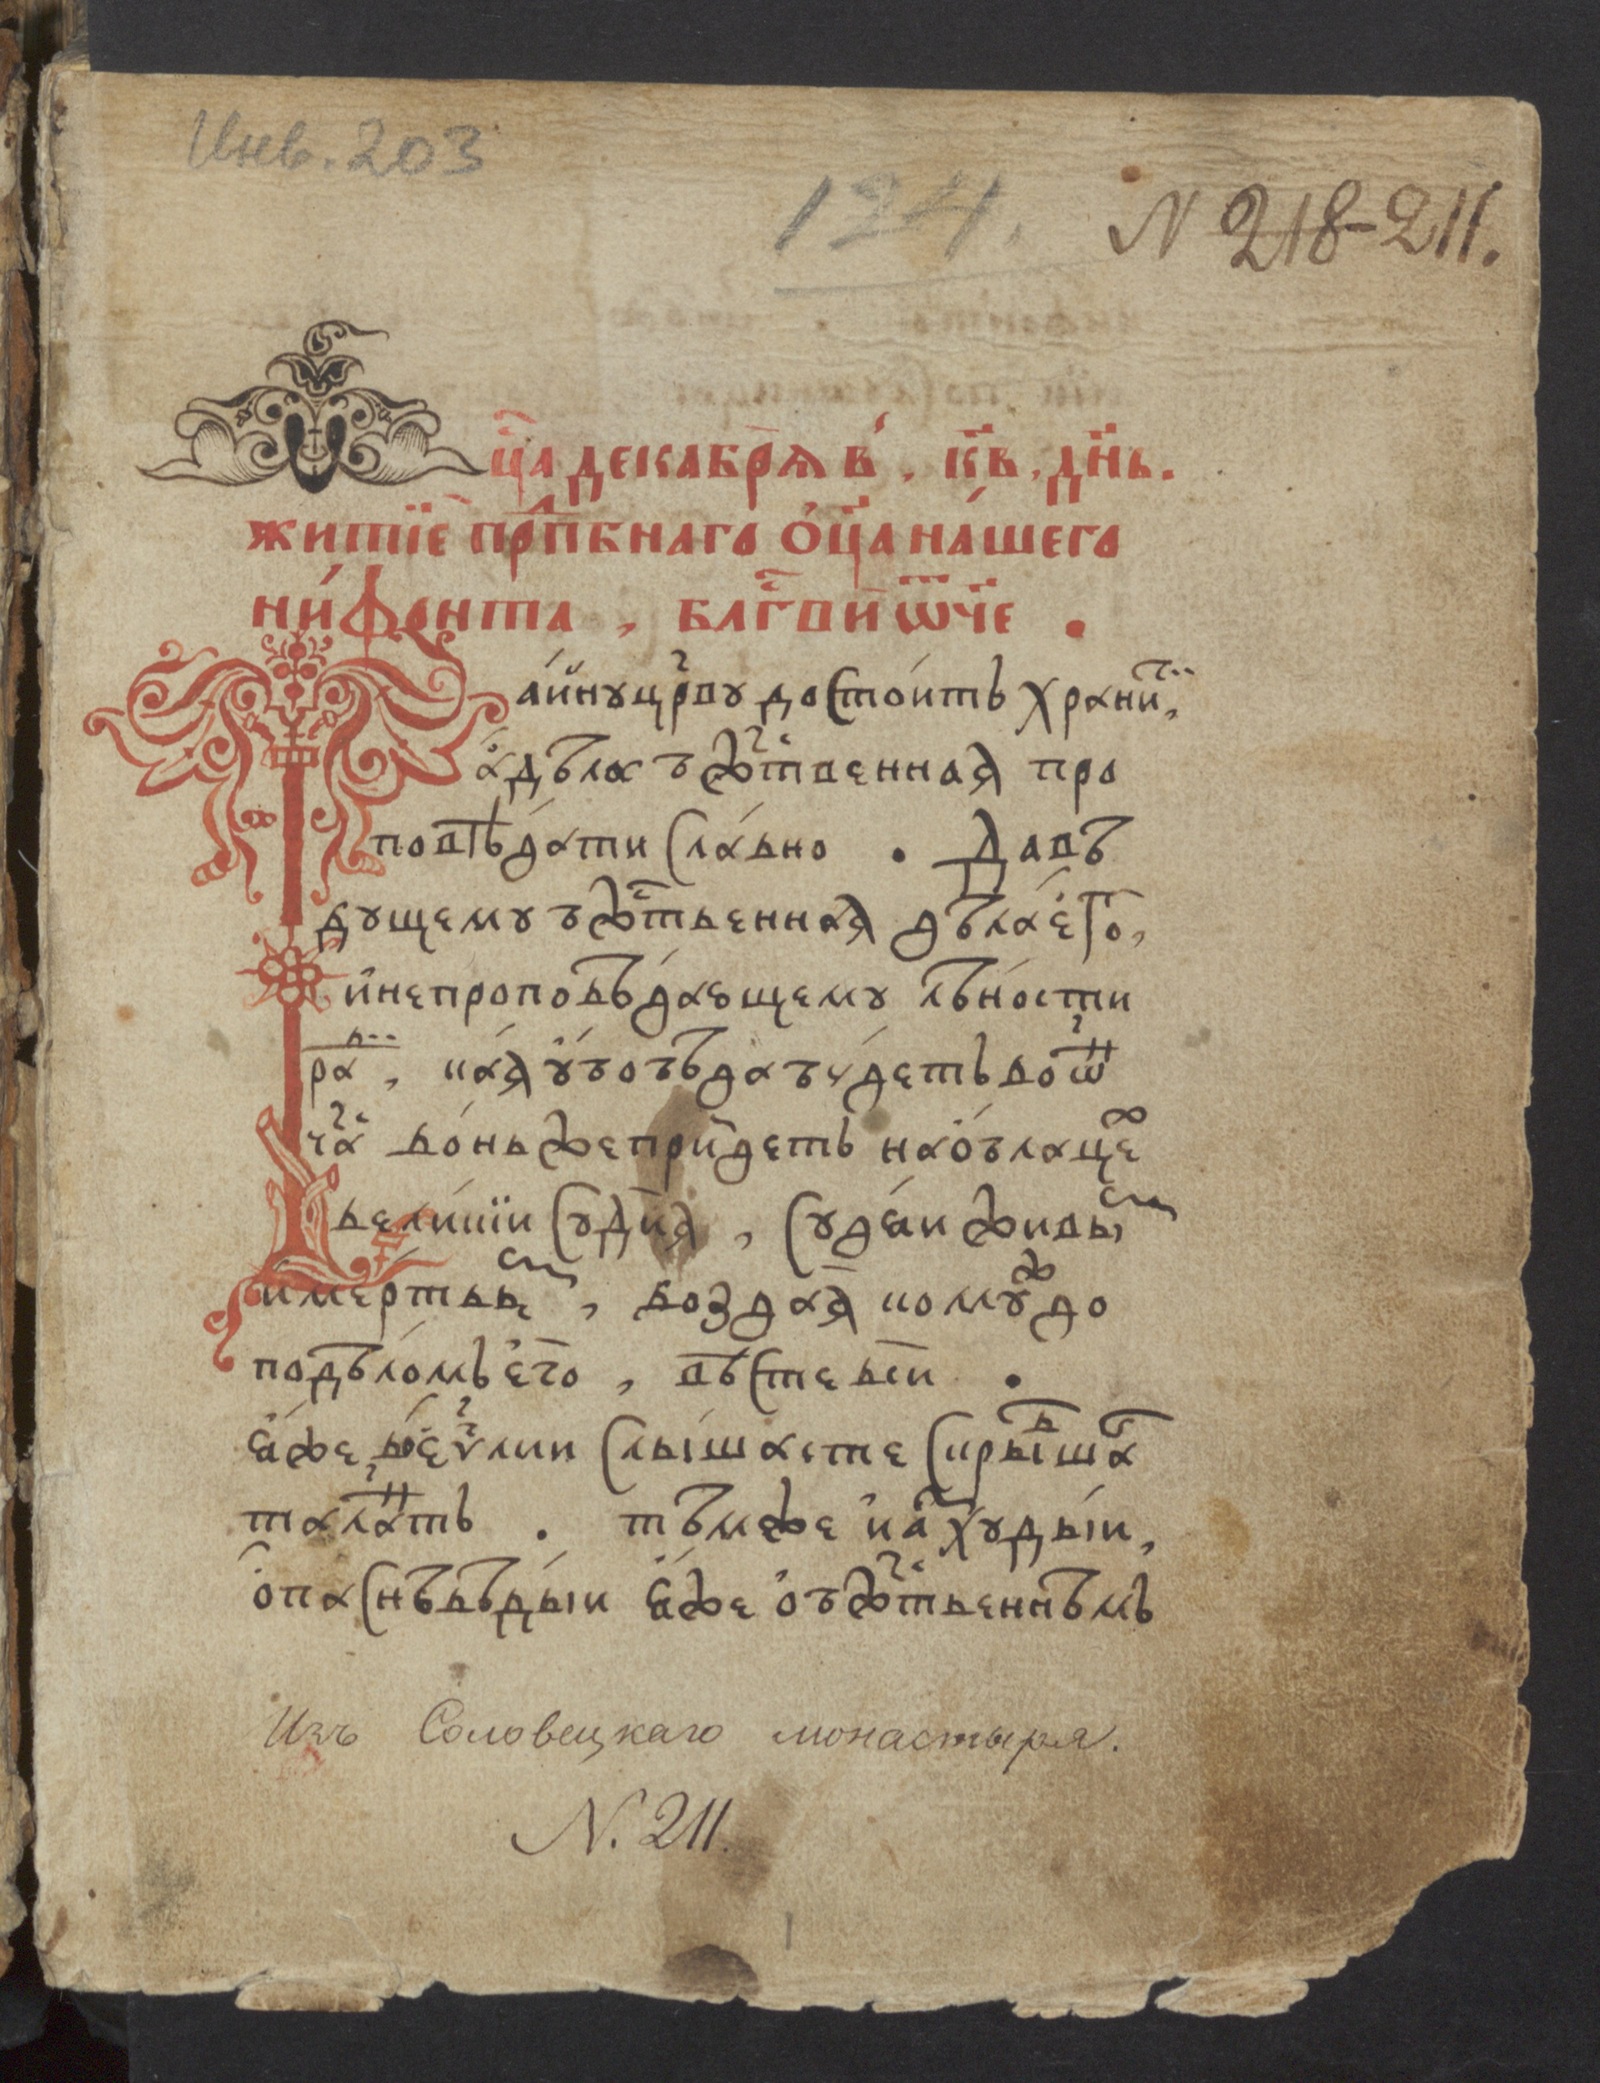 Инв. 203
124.
N 218-211.
мц҃а декабрѧ в҃, к҃в, дн҃ь.
житїе прⷣпбнаго ѻц҃а нашего
нифонта, блгⷭ҇ви ѿч҃е .
Тайну црⷭ҇ву достоитъ хранитⷤ,
а дѣла бжⷭ҇твенная про
повѣдати славно . Да въ
дущему бжⷭ҇твенная дѣла его,
и не проповѣдающему лѣности
ра, кая ѹбо бѣда бꙋдеть во ѿ
чⷭ҇а вонь же прїидеть на облацѣ
великїи судия, судяи живы
и мертвы, воздая комуждо
по дѣломъ его, вѣсте вси .
яже в еѵⷢ҇лии слышасте скрывша
талатъ . тѣмже и азъ худыи,
опаснѣ вѣдыи яже о бжⷭ҇твеннѣмъ
Изъ Соловецкаго монастыря.
N. 211.